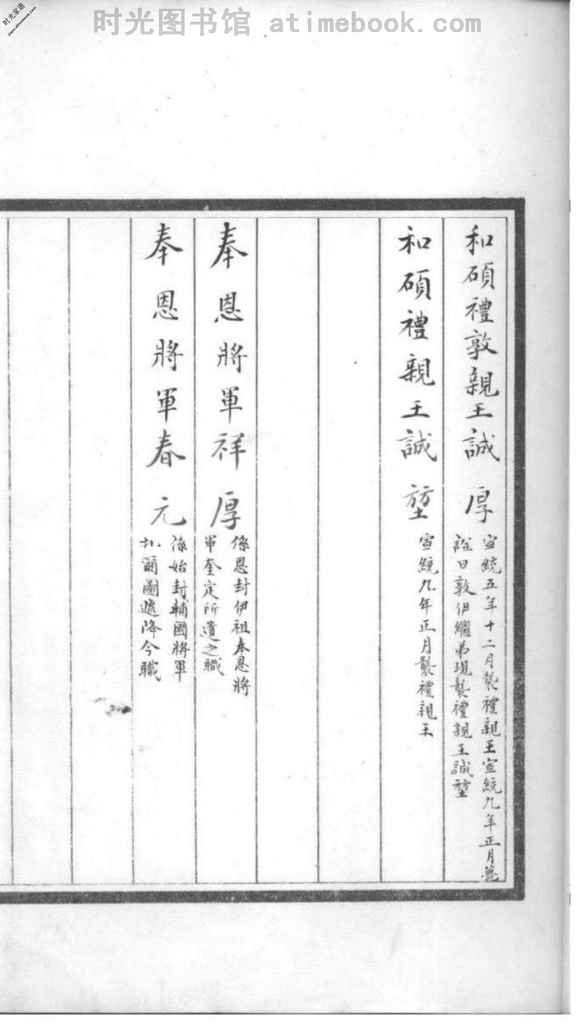 时光图书馆 atimebook.com
和碩禮敦親王誠厚
宣統五年十二月襲禮親王宣統九年正月薨
諡曰敦伊繼弟現襲禮親王誠堃
和碩禮親王誠堃
宣統九年正月襲禮親王
奉恩將軍祥厚
係恩封伊祖奉恩將
軍奎定所遺之職
奉恩將軍春元
係始封輔國將軍
扎爾圖遞降今職